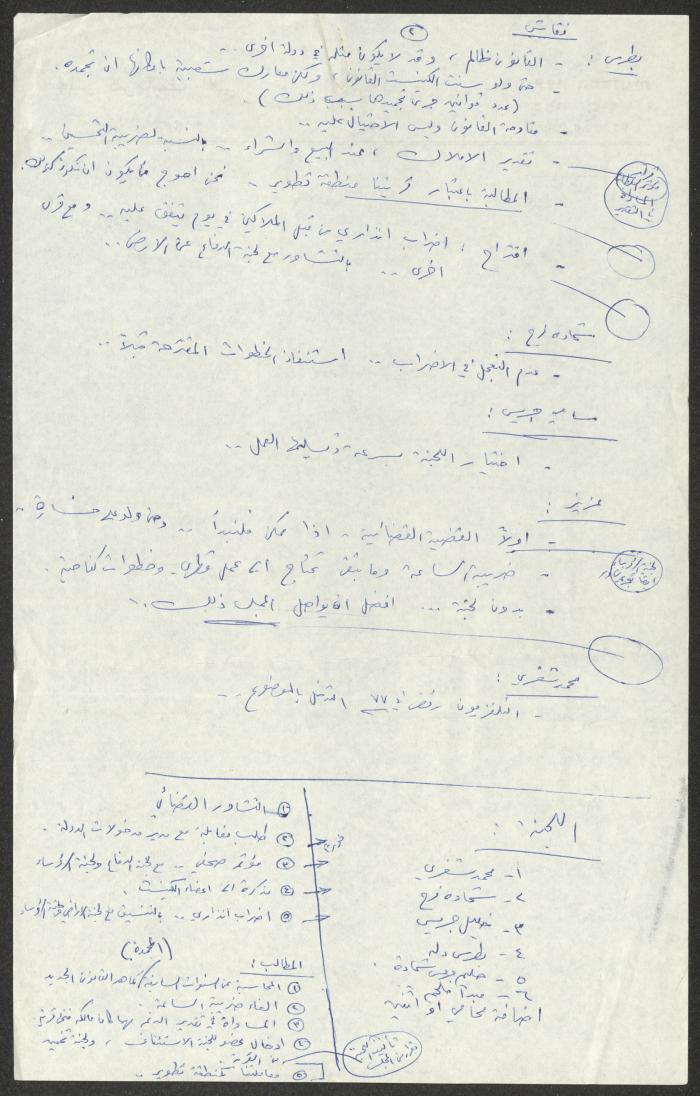 نقاش
٢
بطرس :
- القانون ظالم ، وقد لا يكون مثله في دولة اخرى ..
- حتى ولو سنت الكنيست القانون ، ولكن معارك شعبية بامكانها ان تجمده .
(عدد قوانين جرى تجميدها بسبب ذلك)
- مقاومة القانون وليس الاحتيال عليه ..
- تقدير الاملاك ، عند البيع والشراء .. بالنسبة لضريبة التحسين ..
- المطالبة باعتبار قريتنا منطقة تطوير .. نحن احوج ما يكون ان تكون كذلك
- اقتراح : اضراب انذاري من قبل الملاكين في يوم يتفق عليه .. ومع قرى
اخرى .. بالتشاور مع لجنة الدفاع عن الارض ..
شحاده فرح :
- عدم التعجل في الاضراب .. استنفاذ الخطوات المقترحة قبلاً ..
سامي جريس :
- اختيار اللجنة بسرعة وتسليمها العمل ..
عزيز :
- اولاً القضية القضائية .. اذا ممكن فلنبدأ .. وحتى ولو على خسارة ..
- ضريبة الساعة وما تبقى تحتاج الى عمل قطري وخطوات كفاحية .
- بدون لجنة ... افضل ان يواصل المجلس ذلك ..
محمد شغري :
- التلفزيون رفض في ٧٧ التدخل بالموضوع ..
اللجنة :
١- محمد شغري
٢- شحاده فرح
٣- خليل جريس
٤- بطرس دله
٥- حليم جريس شحادة
٦- مبدا ملحم
اضافة محامي او اثنين
① التشاور القضائي
② طلب مقابلة مع مدير مدخولات الدولة .
③ مؤتمر صحفي .. مع لجنة الدفاع ولجنة الرؤساء
④ مذكرة الى اعضاء الكنيست .
⑤ اضراب انذاري .. بالتنسيق مع لجنة الاراضي ولجنة الرؤساء
المطالب :
① المحاسبة عن السنوات السابقة كما هو القانون الجديد
② الغاء ضريبة الساعة .
③ المساواة في تقدير الدنم
④ ادخال عضو للجنة الاستئناف ، ولجنة تخمين
من القرية
⑤ معاملتنا كمنطقة تطوير ..